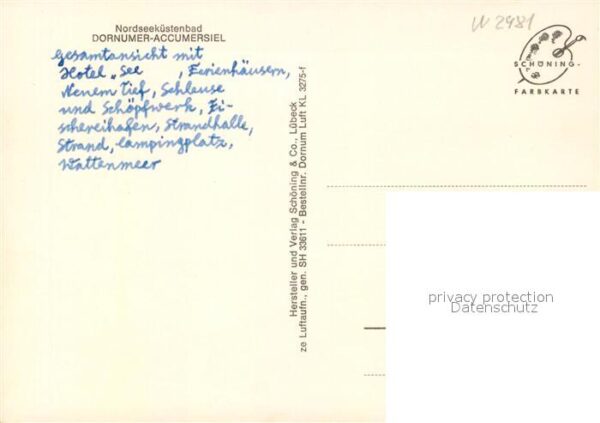 Nordseeküstenbad
DORNUMER-ACCUMERSIEL
Gesamtansicht mit
Hotel „See , Ferienhäusern,
Neuem Tief, Schleuse
und Schöpfwerk, Fi-
schereihafen, Strandhalle,
Strand, Campingplatz,
Wattenmeer
Hersteller und Verlag Schöning & Co., Lübeck
ze Luftaufn., gen. SH 33611 - Bestellnr. Dornum Luft KL 3275-f
W 2481
SCHÖNING-
FARBKARTE
privacy protection
Datenschutz